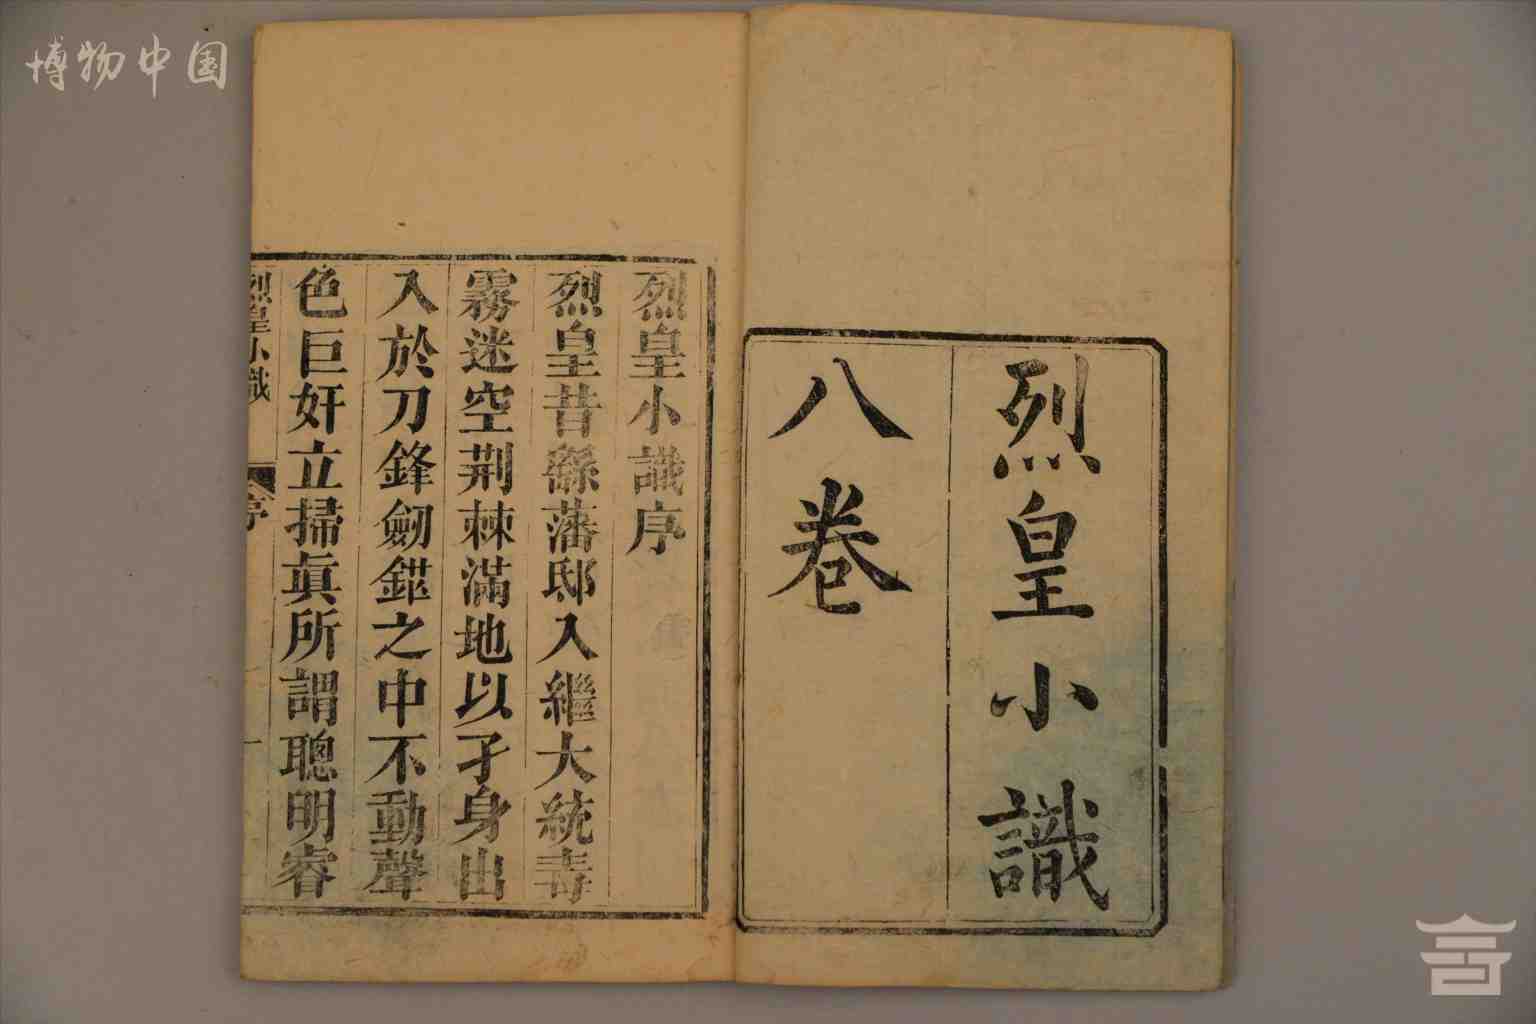 博物中国
烈皇小識
八卷
烈皇小識序
烈皇昔繇藩邸入繼大統毒
霧迷空荆棘滿地以孑身出
入於刀鋒劒鋩之中不動聲
色巨奸立掃眞所謂聰明睿
烈皇小識 序 一